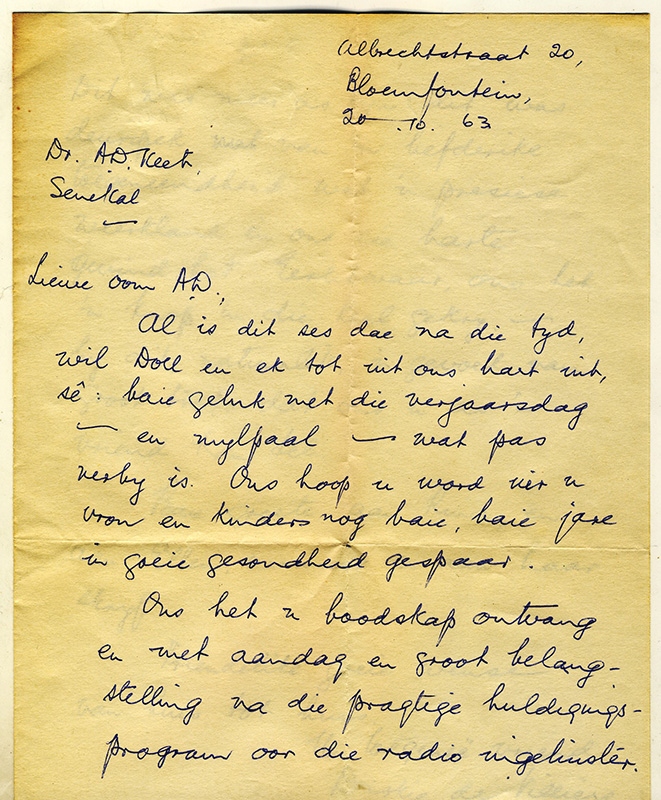 Albrechtstraat 20,
Bloemfontein,
20 — .10. 63
Dr. A.D. Keet,
Senekal
—
Liewe oom A.D.,
Al is dit ses dae na die tyd,
wil Doll en ek tot uit ons hart uit,
sê: baie geluk met die verjaarsdag
— en mylpaal — wat pas
verby is. Ons hoop u word vir u
vrou en kinders nog baie, baie jare
in goeie gesondheid gespaar.
Ons het u boodskap ontvang
en met aandag en groot belang-
stelling na die pragtige huldigings-
program oor die radio ingeluister.